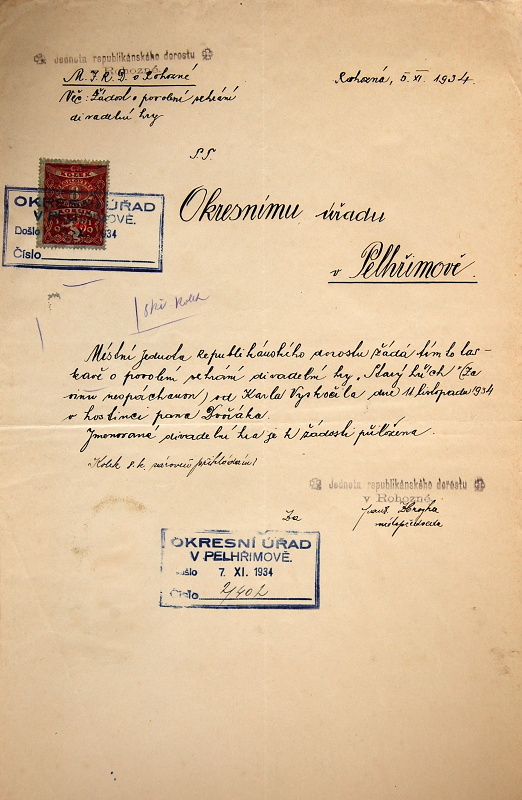 Jednota republikánského dorostu
v Rohozné.
M. J. R. D. v Rohozné
Rohozná, 5. XI. 1934.
Věc: Žádost o povolení sehrání
divadelní hry
S. S.
KOLEK
OKRESNÍ ÚŘAD
V PELHŘIMOVĚ.
Došlo 1934
Číslo
Okresnímu úřadu
v Pelhřimově.
kolek
Místní jednota Republikánského dorostu žádá tímto las-
kavě o povolení sehrání divadelní hry „Starý hřích" (Za
vinu neopáchanou) od Karla Vyskočila dne 11. listopadu 1934
v hostinci pana Dvořáka.
Jmenovaná divadelní hra je k žádosti přiložena.
Kolek 8 k. zároveň přikládám!
Jednota republikánského dorostu
v Rohozné.
Za
místopředseda
OKRESNÍ ÚŘAD
V PELHŘIMOVĚ.
Došlo 7. XI. 1934
Číslo